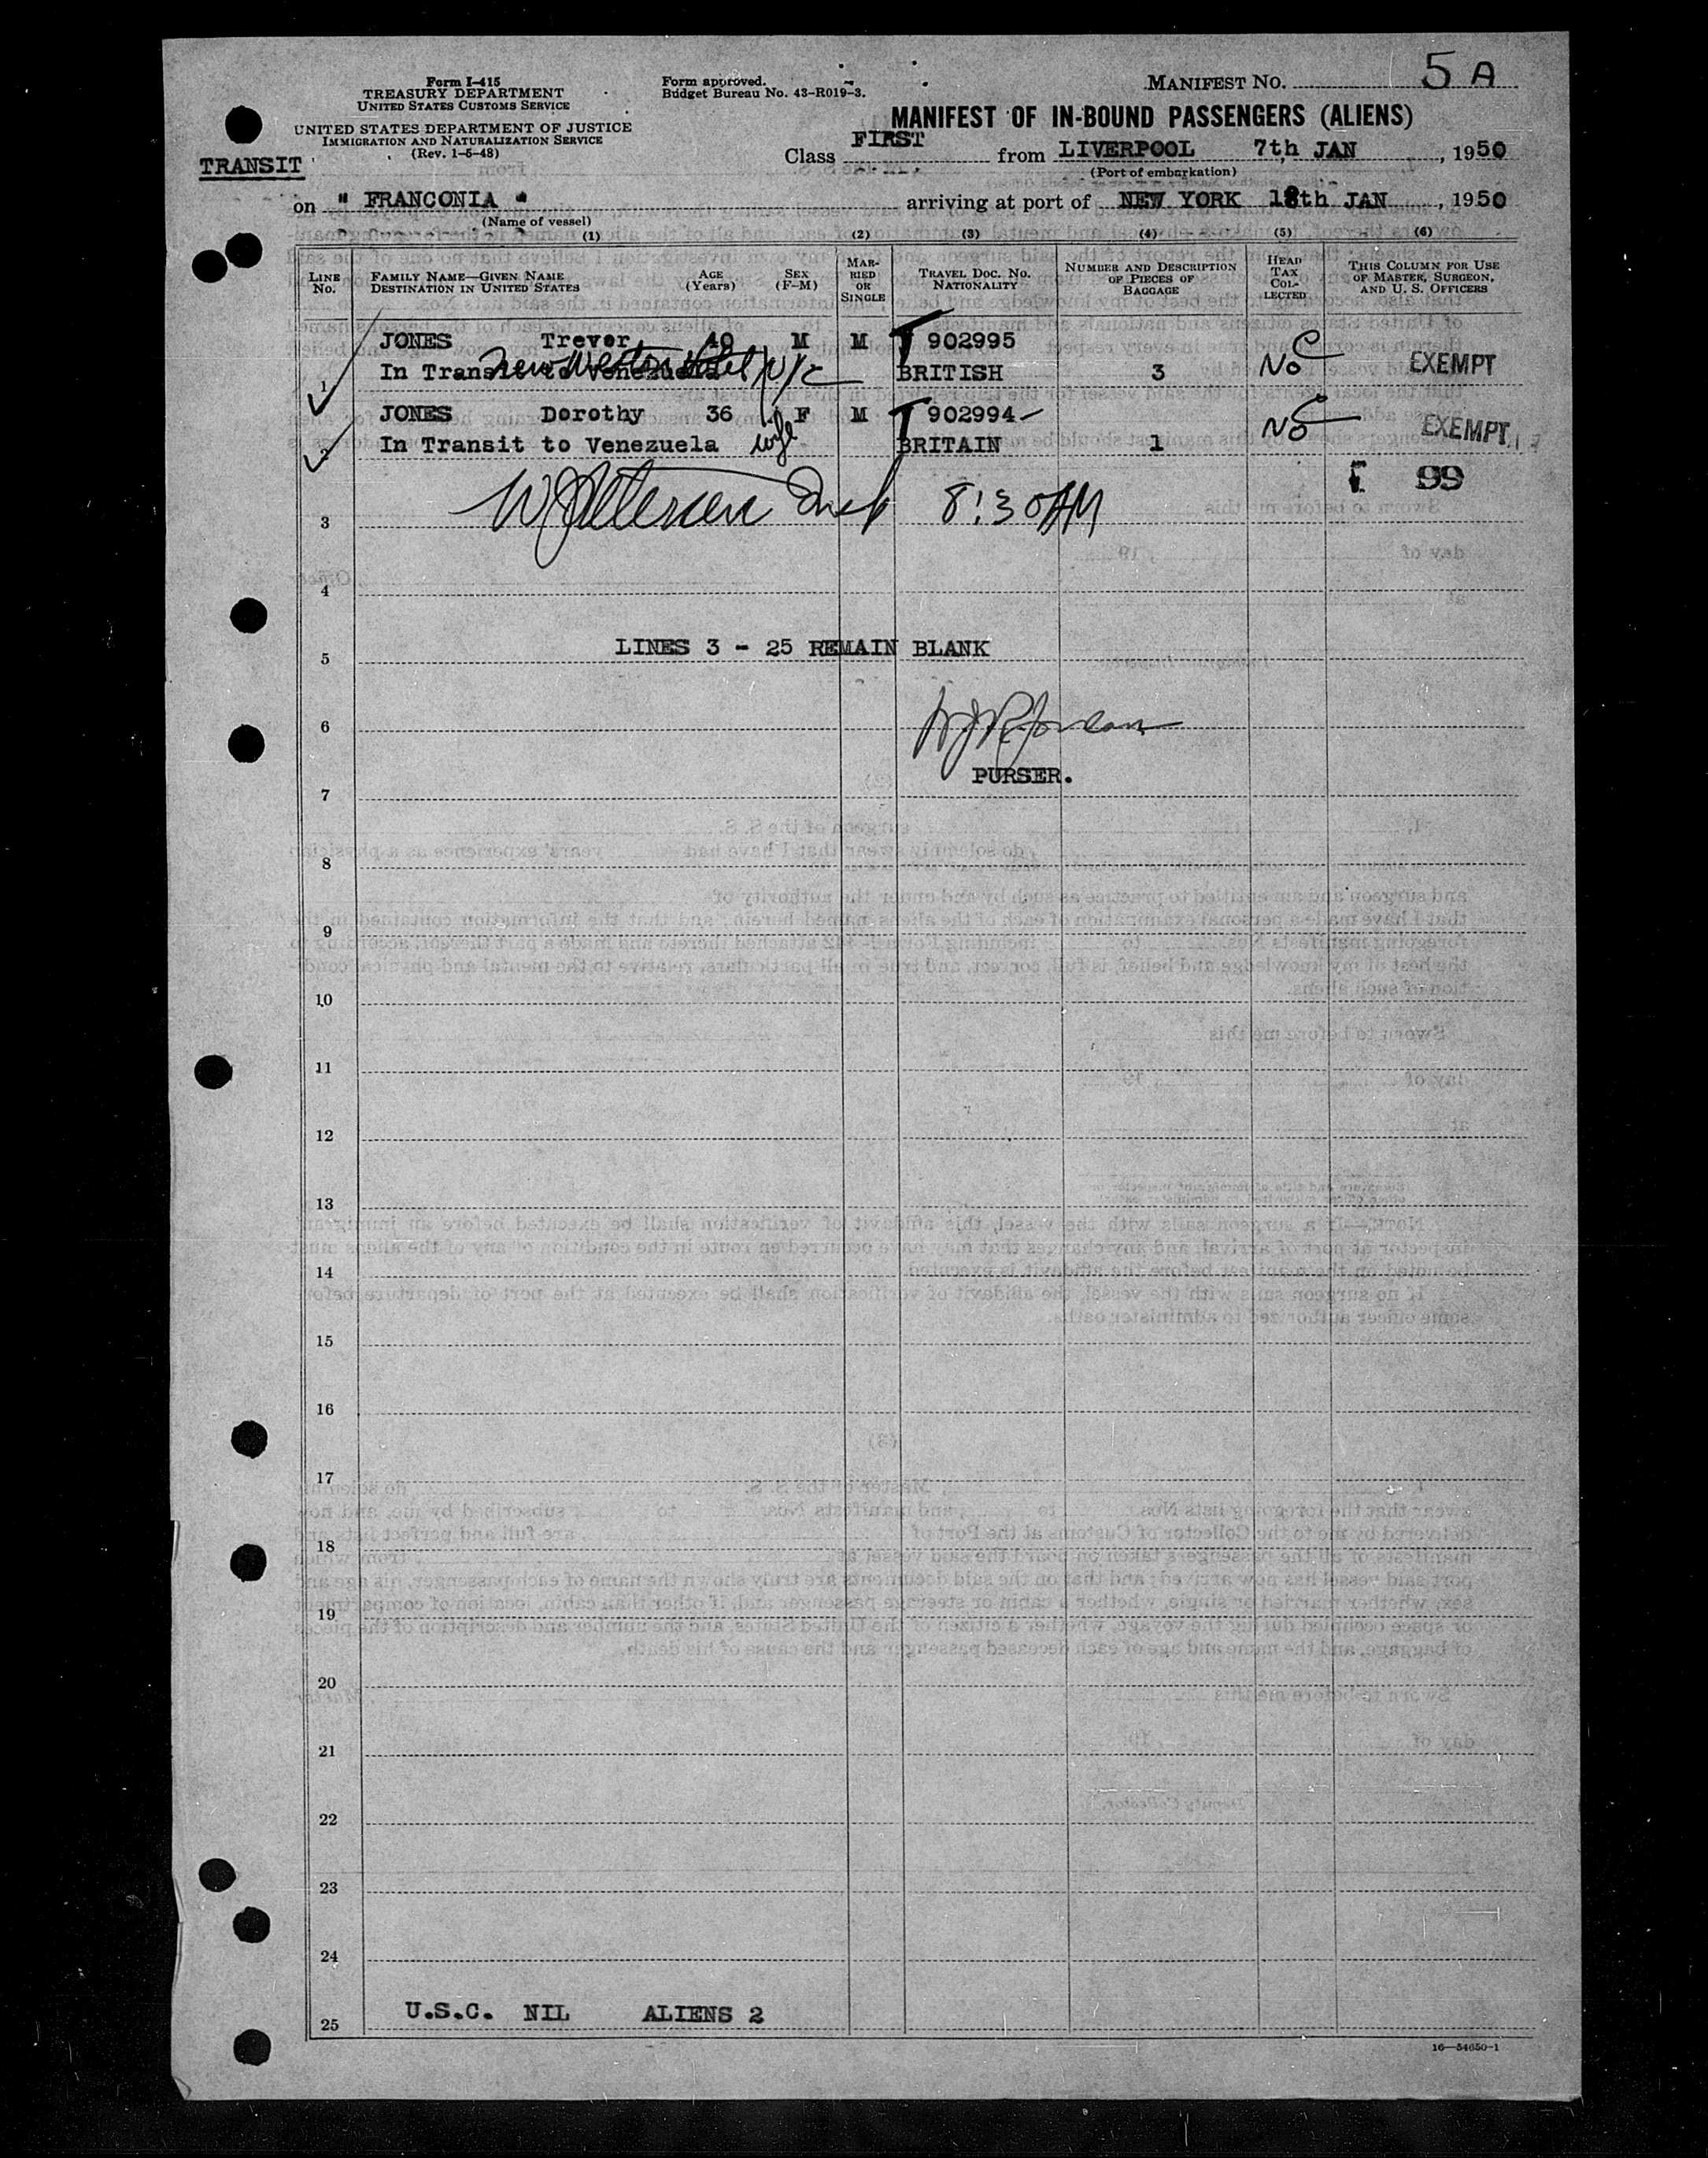 Form I-415
TREASURY DEPARTMENT
UNITED STATES CUSTOMS SERVICE
UNITED STATES DEPARTMENT OF JUSTICE
IMMIGRATION AND NATURALIZATION SERVICE
(Rev. 1-5-48)
TRANSIT
Form approved.
Budget Bureau No. 43-R019-3.
MANIFEST NO. 5 A
MANIFEST OF IN-BOUND PASSENGERS (ALIENS)
Class FIRST from LIVERPOOL 7th JAN, 1950
(Port of embarkation)
on " FRANCONIA " arriving at port of NEW YORK 18th JAN, 1950
(Name of vessel)
(1) (2) (3) (4) (5) (6)
LINE No. FAMILY NAME—GIVEN NAME DESTINATION IN UNITED STATES AGE (Years) SEX (F-M) MARRIED OR SINGLE TRAVEL DOC. NO. NATIONALITY NUMBER AND DESCRIPTION OF PIECES OF BAGGAGE HEAD TAX COLLECTED THIS COLUMN FOR USE OF MASTER, SURGEON, AND U. S. OFFICERS
JONES Trevor 40 M M 902995
1 In Transit to Venezuela New Weston Hotel NYC BRITISH 3 No EXEMPT
JONES Dorothy 36 F M 902994
2 In Transit to Venezuela wife BRITAIN 1 No EXEMPT
99
3 8:30 AM
4
LINES 3 - 25 REMAIN BLANK
5
6
PURSER.
7
8
9
10
11
12
13
14
15
16
17
18
19
20
21
22
23
24
U.S.C. NIL ALIENS 2
25
16—54650-1